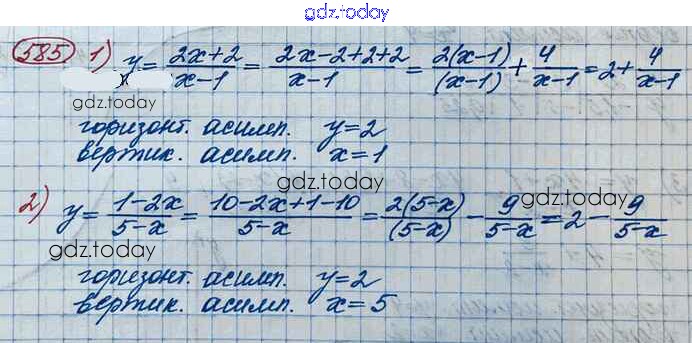 gdz.today
585 1) y = (2x+2)/(x-1) = (2x-2+2+2)/(x-1) = 2(x-1)/(x-1) + 4/(x-1) = 2 + 4/(x-1)
gdz.today
горизонт. асимп. y=2
вертик. асимп. x=1
gdz.today
2) y = (1-2x)/(5-x) = (10-2x+1-10)/(5-x) = 2(5-x)/(5-x) - 9/(5-x) = 2 - 9/(5-x)
gdz.today
gdz.today
горизонт. асимп. y=2
вертик. асимп. x=5